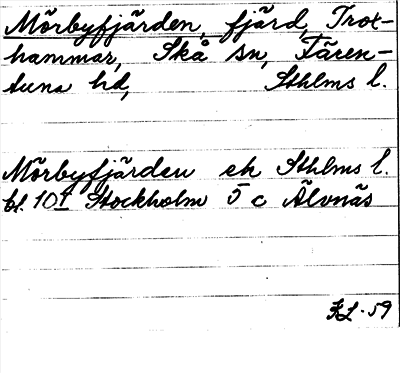 Mörbyfjärden, fjärd, Trox-
hammar, Skå sn, Fären-
tuna hd, Sthlms l.
Mörbyfjärden ek Sthlms l.
bl. 101 Stockholm 5 c Älvnäs
KL-59